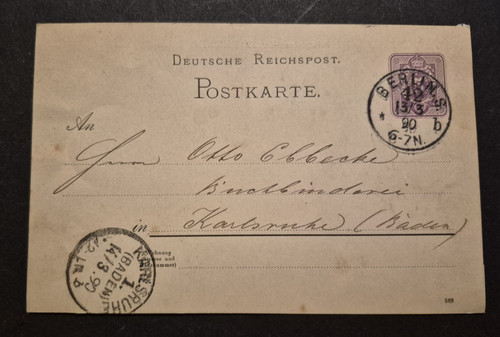 DEUTSCHE REICHSPOST.
POSTKARTE.
BERLIN, S.
42
13/3
90
6-7N.
* b
An
Herrn Otto Ebbecke
Buchbinderei
in Karlsruhe (Baden)
KARLSRUHE
(BADEN)
1.
14/3.90